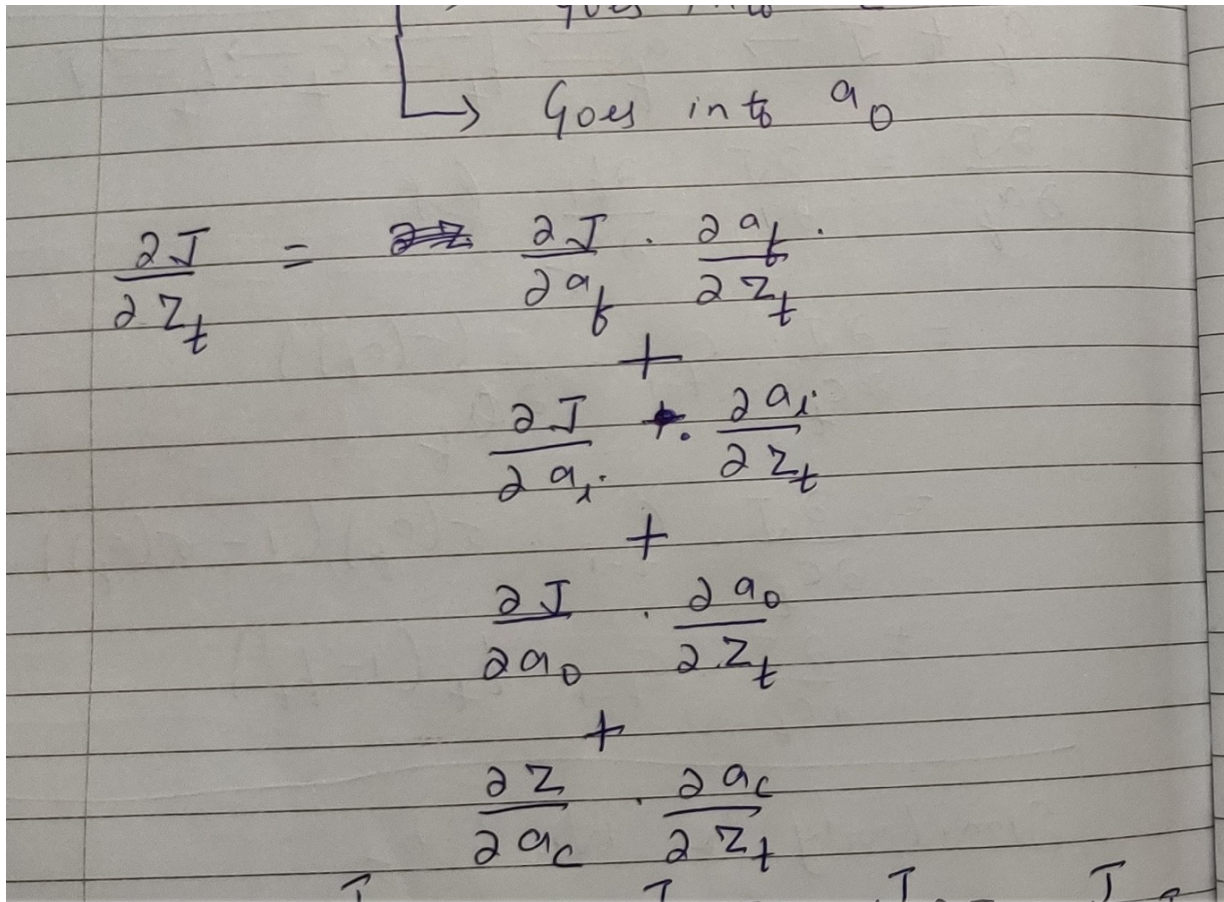 → Goes into a_o
∂J/∂Z_t = ∂J/∂a_f . ∂a_f/∂Z_t .
+
∂J/∂a_i . ∂a_i/∂Z_t
+
∂J/∂a_o . ∂a_o/∂Z_t
+
∂Z/∂a_c . ∂a_c/∂Z_t